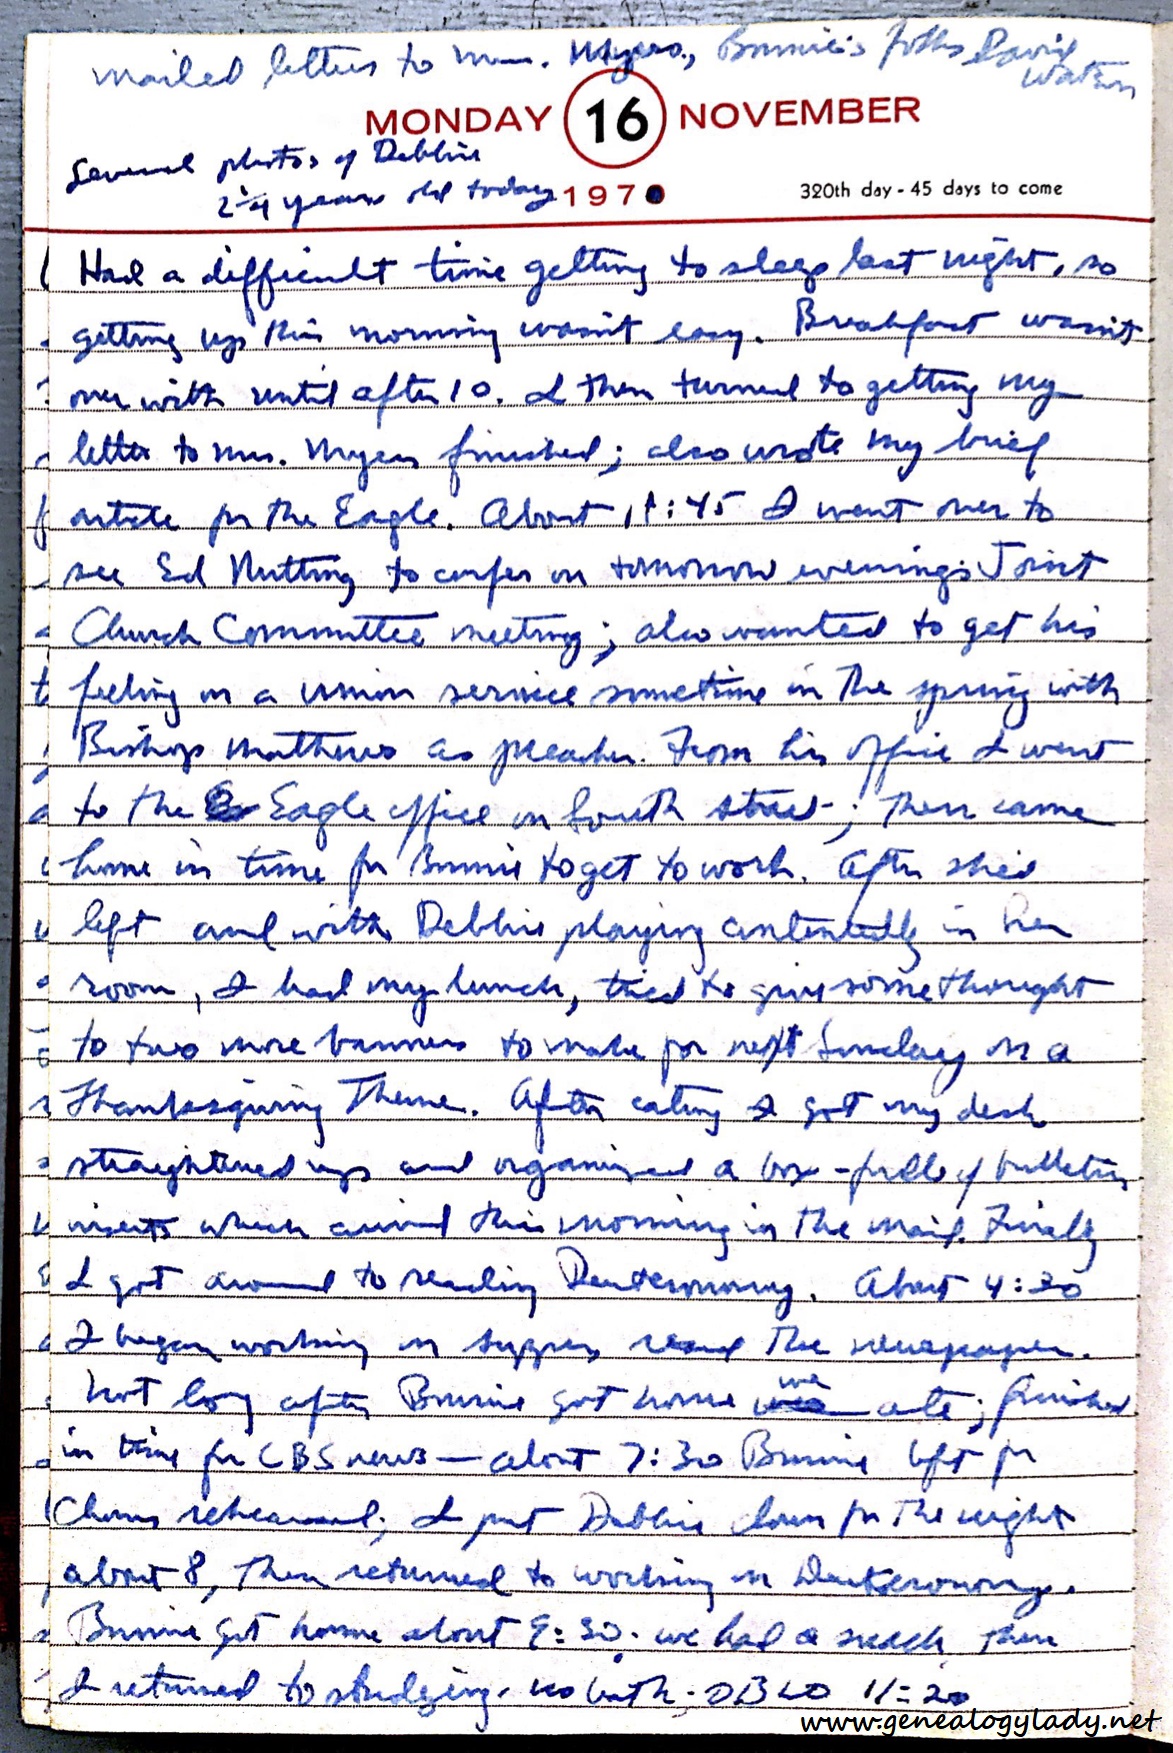 mailed letters to Mrs. Myers, Bonnie's folks, David
Watson
MONDAY 16 NOVEMBER
Several photos of Debbie
2 1/4 years old today
1970
320th day - 45 days to come
Had a difficult time getting to sleep last night, so
getting up this morning wasn't easy. Breakfast wasn't
over with until after 10. I then turned to getting my
letter to Mrs. Myers finished; also wrote my brief
article for the Eagle. About 11:45 I went over to
see Ed Nutting to confer on tomorrow evening's Joint
Church Committee meeting; also wanted to get his
feeling on a union service sometime in the spring with
Bishop Matthews as preacher. From his office I went
to the Eagle office on South street; then came
home in time for Bonnie to get to work. After she'd
left and with Debbie playing contentedly in her
room, I had my lunch, tried to give some thought
to two more banners to make for next Sunday on a
Thanksgiving Theme. After eating I got my desk
straightened up and organized a box-full of bulletin
inserts which arrived this morning in the mail. Finally
I got around to reading Deuteronomy. About 4:30
I began working on supper, read the newspaper.
Not long after Bonnie got home we ate; finished
in time for CBS news — about 7:30 Bonnie left for
Chorus rehearsal; I put Debbie down for the night
about 8, then returned to working on Deuteronomy.
Bonnie got home about 9:30. We had a snack, then
I returned to studying. No bath; 11:20
www.genealogylady.net